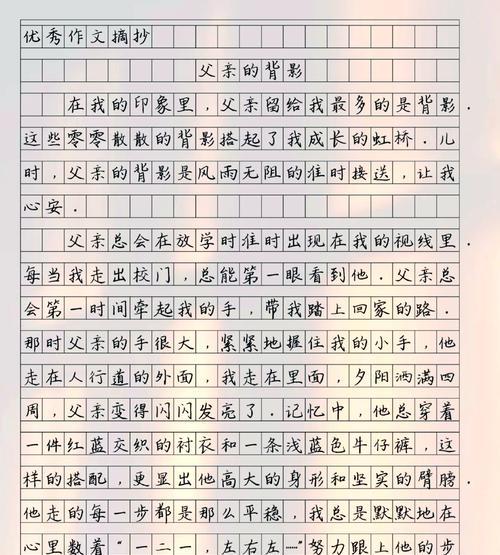 优秀作文摘抄
父亲的背影
在我的印象里，父亲留给我最多的是背影.
这些零零散散的背影搭起了我成长的虹桥.儿
时，父亲的背影是风雨无阻的准时接送，让我
心安.
父亲总会在放学时准时出现在我的视线里.
每当我走出校门，总能第一眼看到他.父亲总
会第一时间牵起我的手，带我踏上回家的路.
那时父亲的手很大，紧紧地握住我的小手，他
走在人行道的外面，我走在里面，夕阳洒满四
周，父亲变得闪闪发亮了.记忆中，他总穿着
一件红蓝交织的衬衣和一条浅蓝色牛仔裤，这
样的搭配，更显出他高大的身形和坚实的臂膀.
他走的每一步都是那么平稳，我总是默默地在
心里数着“一二一，左右左……”努力跟上他的步